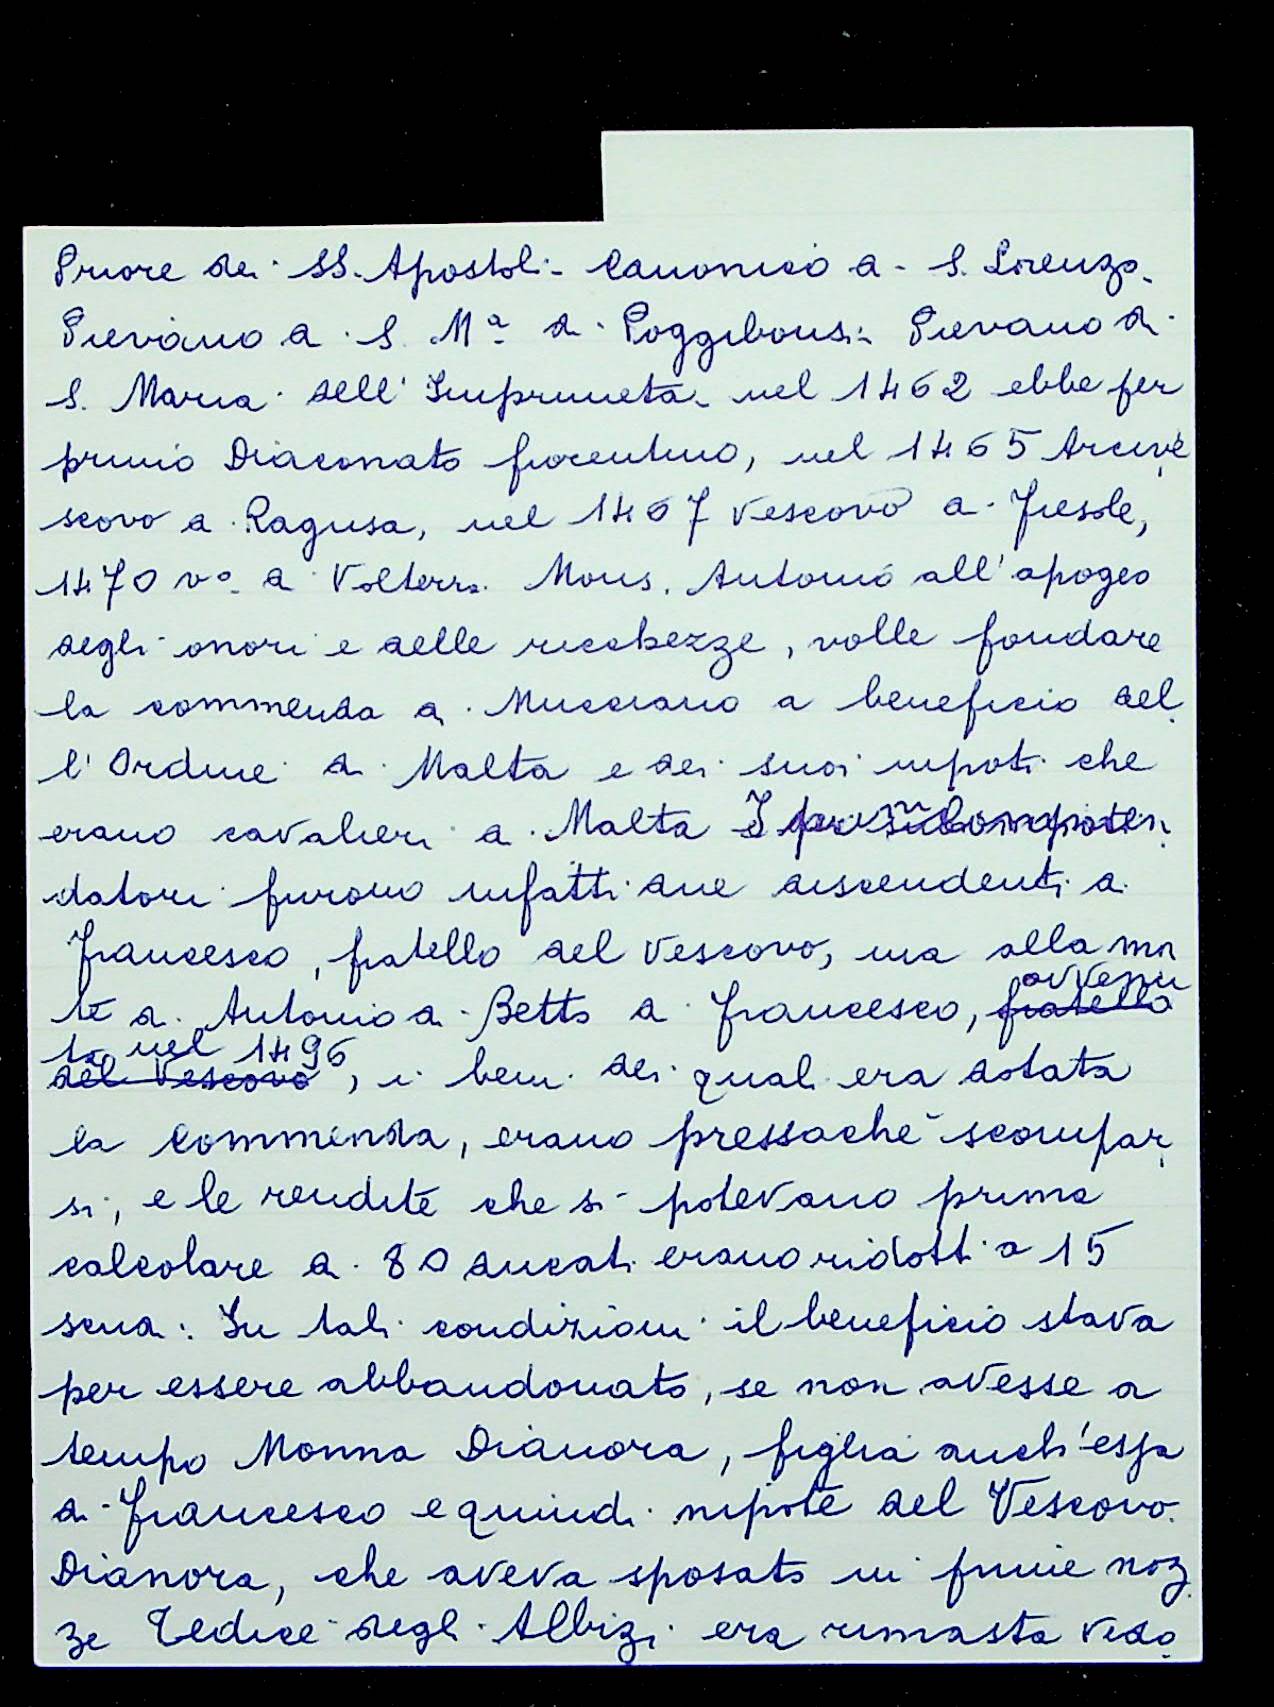 Priore dei SS. Apostoli - Canonico a S. Lorenzo -
Pievano a S. Mª di Poggibonsi - Pievano di
S. Maria dell'Impruneta - nel 1462 ebbe per
primo Diaconato fiorentino, nel 1465 Arcive
scovo a Ragusa, nel 1467 Vescovo a Fiesole,
1470 vº a Volterra. Mons. Antonio all'apogeo
degli onori e delle ricchezze, volle fondare
la commenda di Mucciano a beneficio del
l'Ordine di Malta e dei suoi nipoti che
erano cavalieri di Malta I primi
datori furono infatti due discendenti di
Francesco, fratello del Vescovo, ma alla mor
te di Antonio di Betto di Francesco, fratello avvenu
ta nel 1496
del Vescovo, i beni dei quali era dotata
la Commenda, erano pressoché scompar
si, e le rendite che si potevano prima
calcolare a 80 ducati erano ridotti a 15
scudi. In tali condizioni il beneficio stava
per essere abbandonato, se non avesse a
tempo Monna Dianora, figlia anch'essa
di Francesco e quindi nipote del Vescovo.
Dianora, che aveva sposato in prime noz
ze Tedice degli Albizi era rimasta vedo